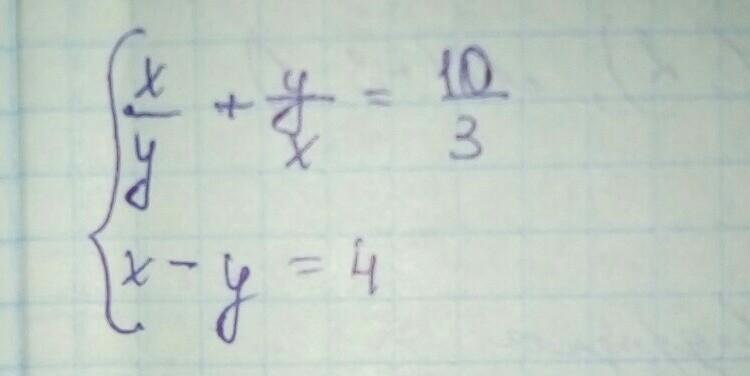 x/y + y/x = 10/3
x - y = 4